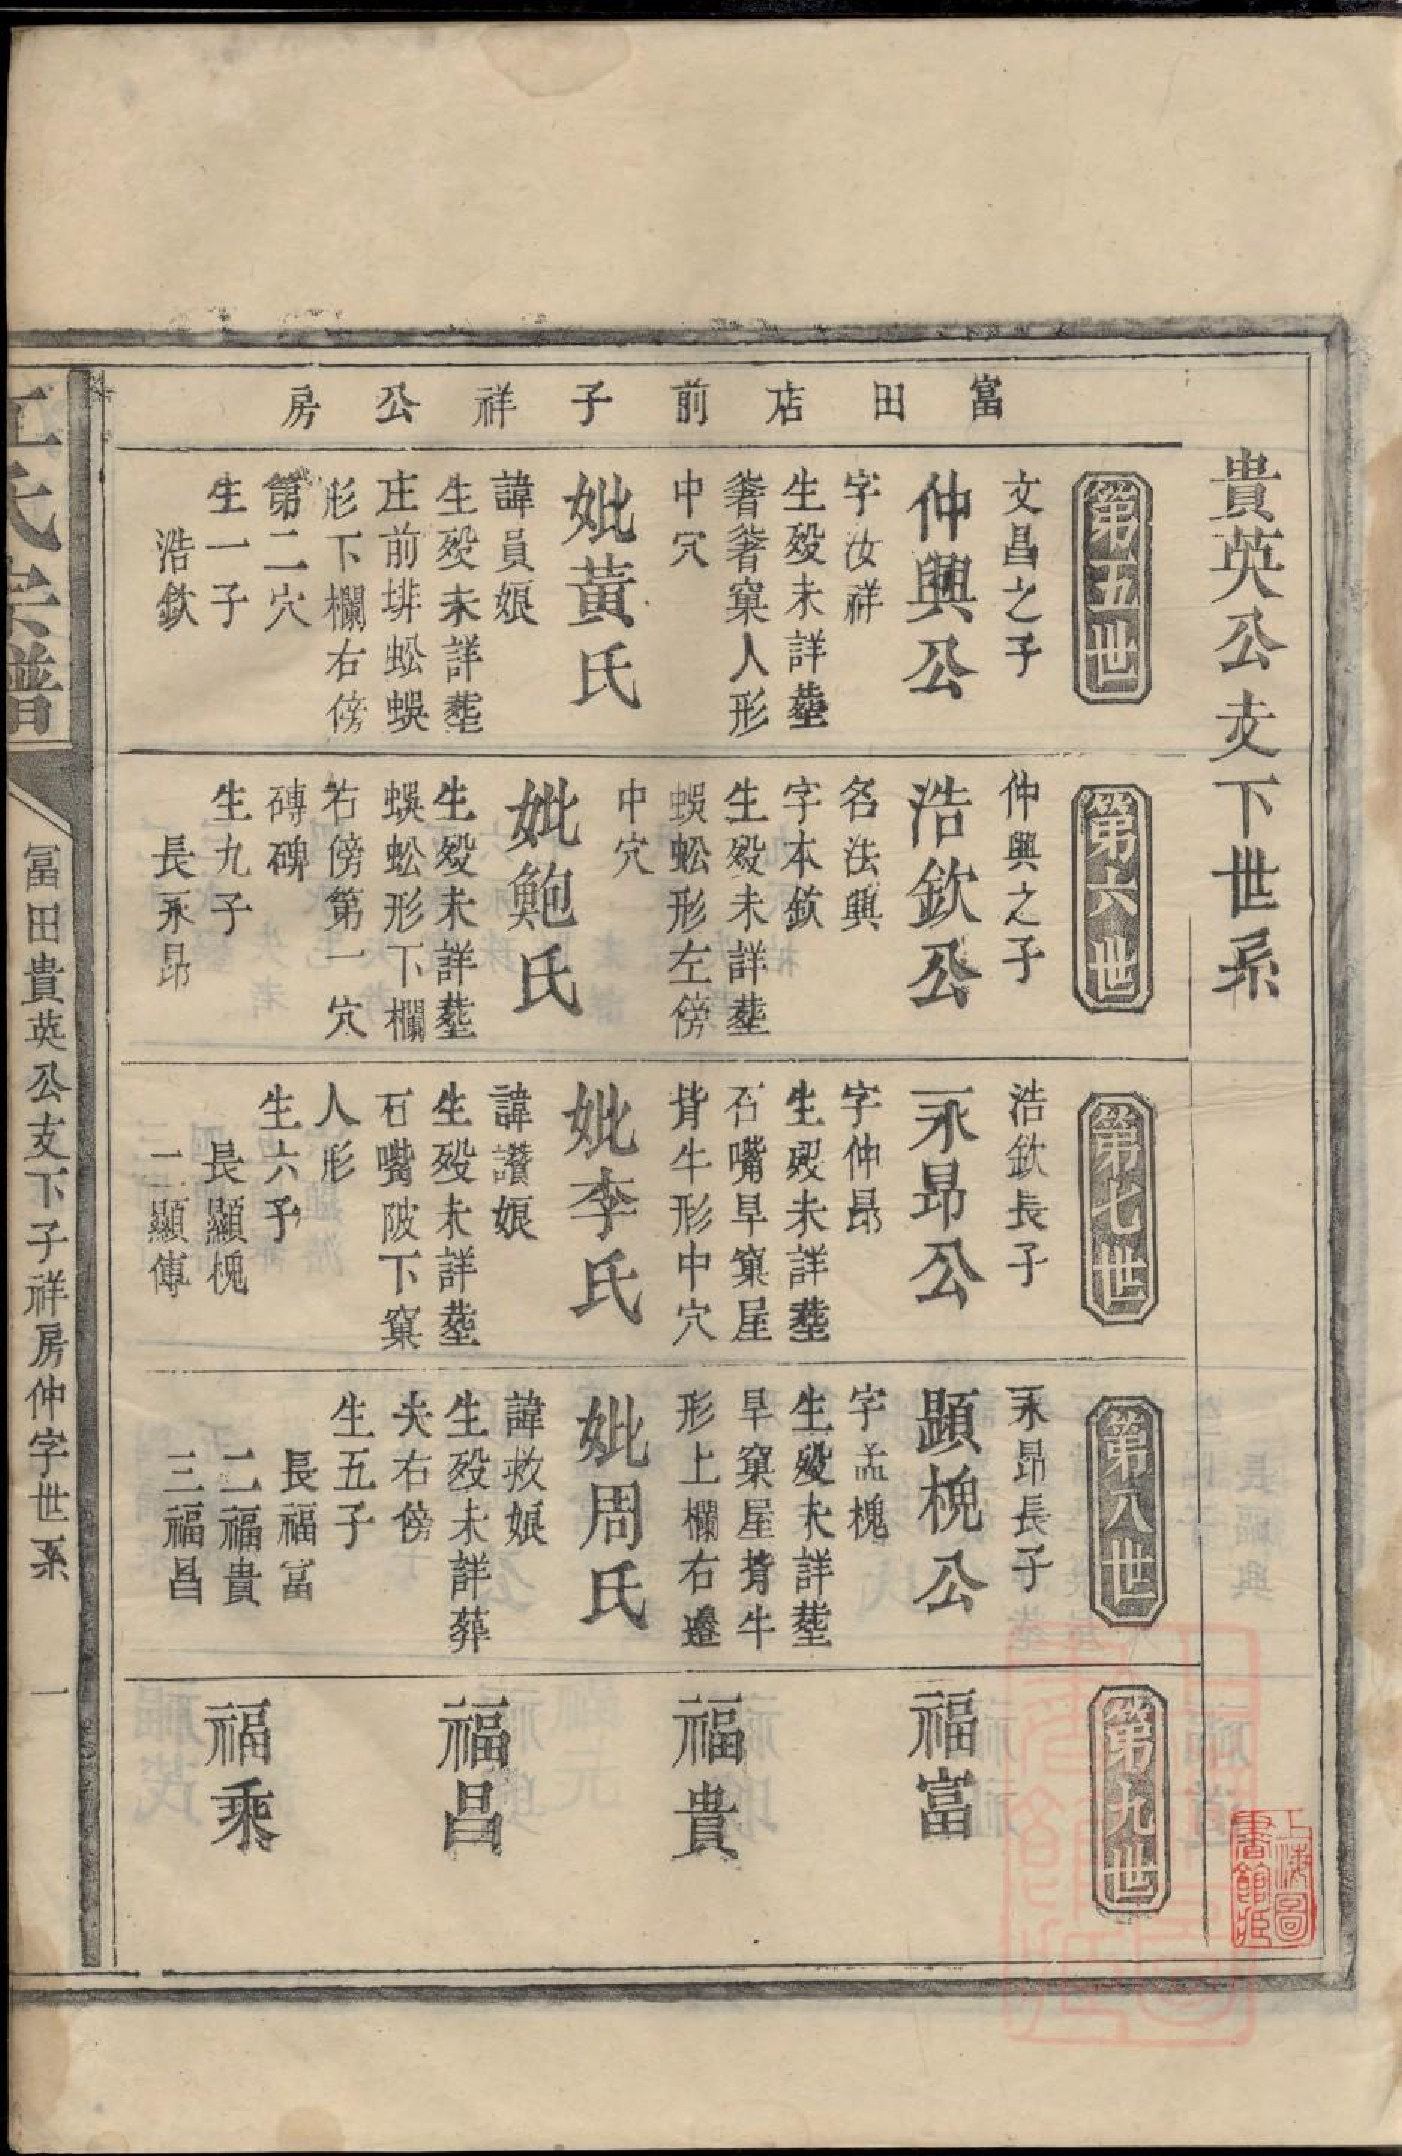 貴英公支下世系
富田店前子祥公房
第五世
文昌之子
仲興公
字汝祥
生殁未詳塟
箬箬窠人形
中穴
妣黃氏
諱員娘
生殁未詳塟
庄前排蜈蚣
形下欄右傍
第二穴
生一子
浩欽
第六世
仲興之子
浩欽公
名法興
字本欽
生殁未詳塟
蜈蚣形左傍
中穴
妣鮑氏
生殁未詳塟
蜈蚣形下欄
右傍第一穴
磚碑
生九子
長永昂
第七世
浩欽長子
永昂公
字仲昂
生殁未詳塟
石嘴旱窠屋
背牛形中穴
妣李氏
諱讚娘
生殁未詳塟
石嘴陂下窠
人形
生六子
長顯槐
二顯傳
第八世
永昂長子
顕槐公
字孟槐
生殁未詳塟
旱窠屋背牛
形上欄右邉
妣周氏
諱救娘
生殁未詳葬
夫右傍
生五子
長福富
二福貴
三福昌
第九世
福富
福貴
福昌
福乘
氏宗譜
冨田貴英公支下子祥房仲字世系
一
上海圖
書館藏